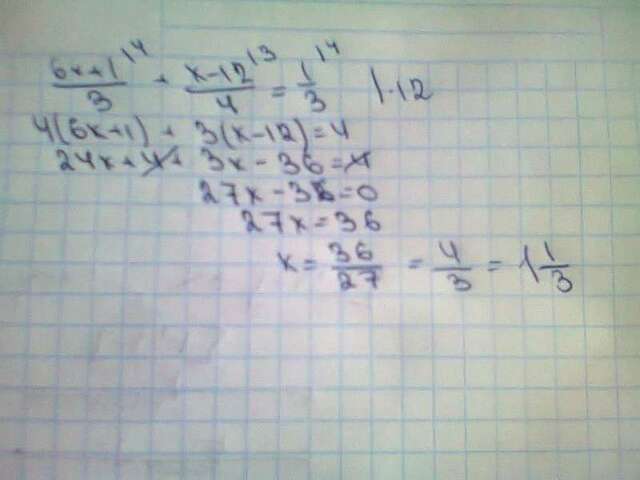 (6x+1)/3 ^|4 + (x-12)/4 ^|3 = 1/3 ^|4 | · 12
4(6x+1) + 3(x-12) = 4
24x + 4 + 3x - 36 = 4
27x - 36 = 0
27x = 36
x = 36/27 = 4/3 = 1 1/3